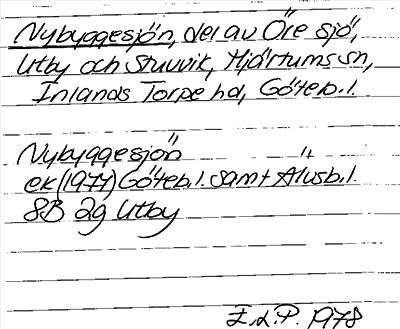 Nybyggesjön, del av Öresjö,
Utby och Stuvvik, Hjärtums sn,
Inlands Torpe hd, Göteb. l.
Nybyggesjön
ek (1977) Göteb. l. samt Älvsb. l.
8B 2g Utby
E.d.P. 1978